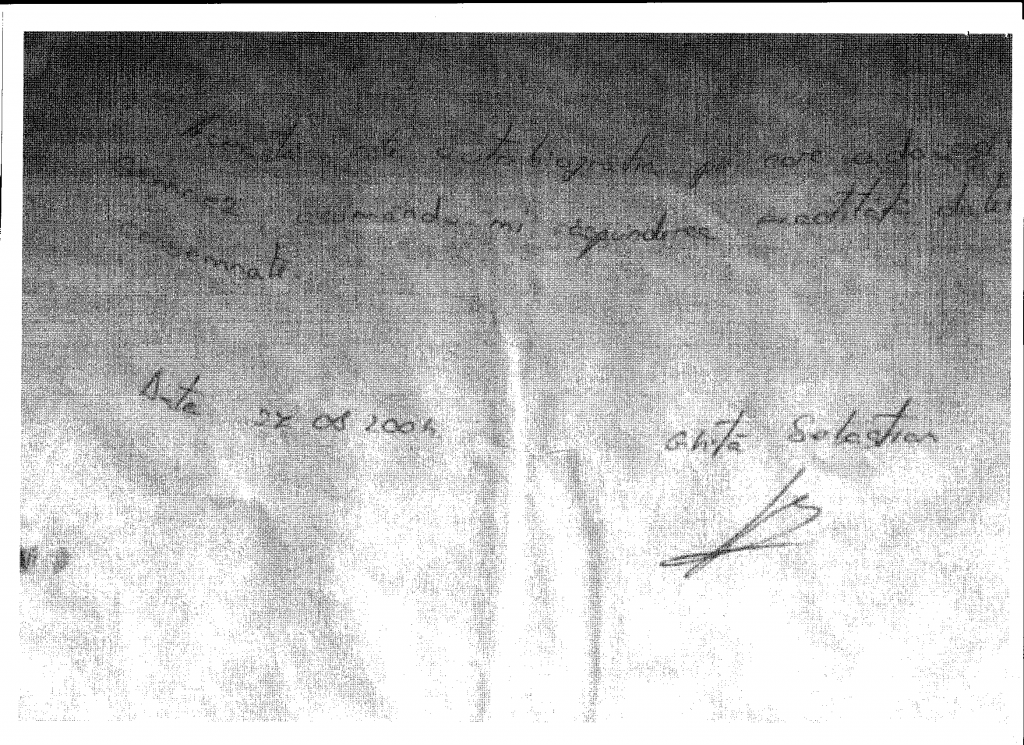 Aceasta este autobiografia pe care o dau și
semnez asumându-mi răspunderea exactității datelor
consemnate.
Data 27 08 2004
Ghiță Sebastian